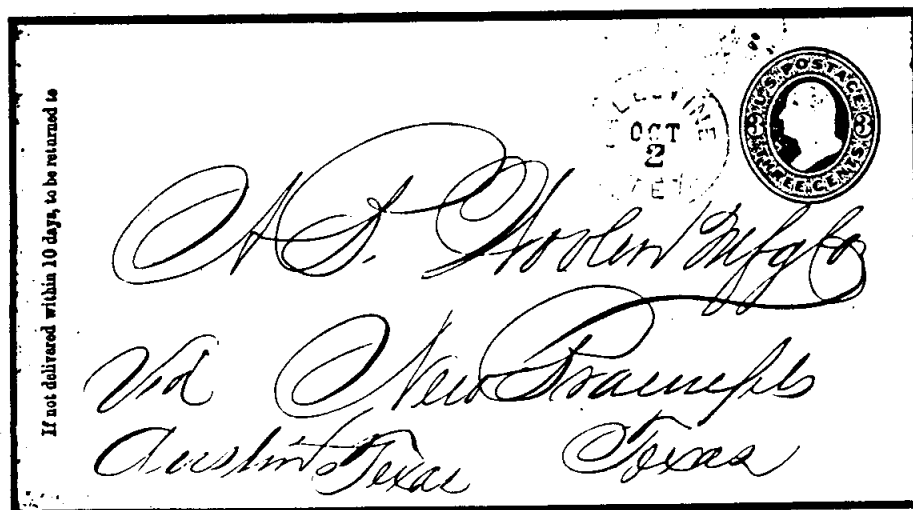 If not delivered within 10 days, to be returned to
OCT
2
U.S. POSTAGE
3 3
THREE CENTS
N. S. Woolen Mfg Co
Via New Braunfels
Austin Texas Texas